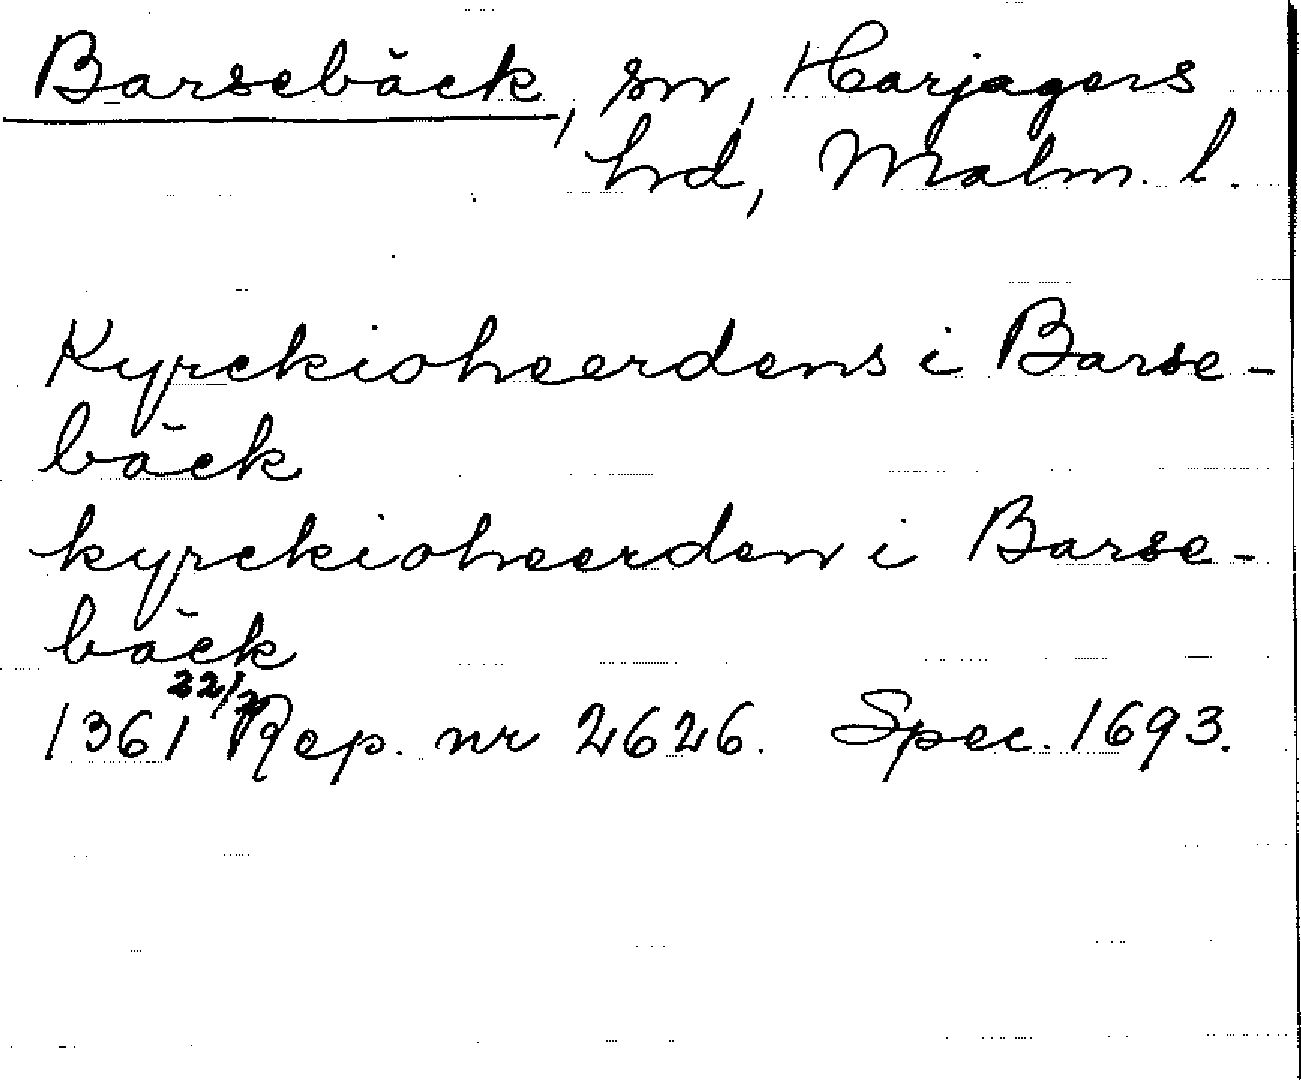 Barsebäck, sn, Harjagers
hd, Malm. l.
Kyrckioheerdens i Barse-
bäck
kyrckioheerden i Barse-
bäck
1361 22/7 Rep. nr 2626. Spec. 1693.